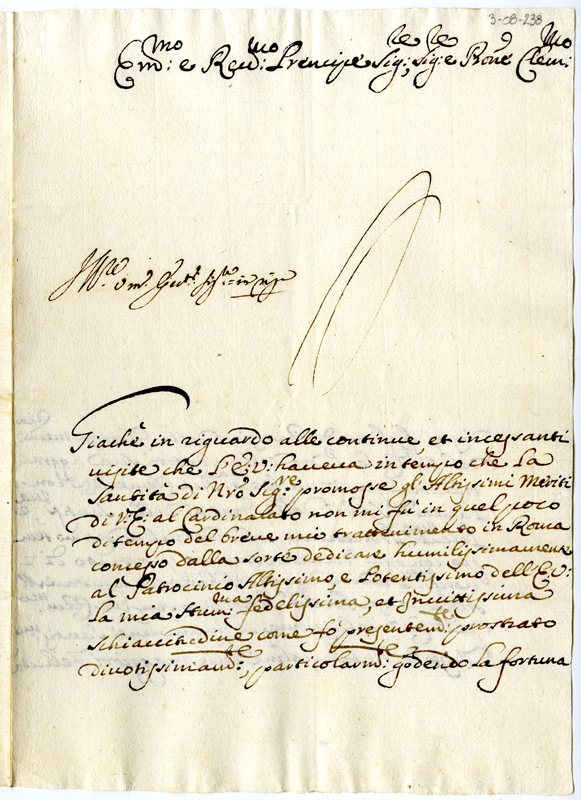 3-08-238
Em:mo e Reu:mo Prencipe Sig:re, sig:re e Prone Clem:mo
Giachè in riguardo alle continue, et incessanti
uisite che l'E: V: haueua in tempo che La
Santità di Nro Sig:re promosse gl'Altissimi Meriti
di V: E: al Cardinalato non mi fù in quel poco
di tempo del breue mio trattenimento in Roma
concesso dalla sorte dedicare humilissimamente
al Patrocinio Altissimo, e Potentissimo dell'E: V:
La mia fedelissima, et Inuittissima
schiauitudine come fò presentem:te prostrato
diuotissimam:te, particolarm:te godendo la fortuna